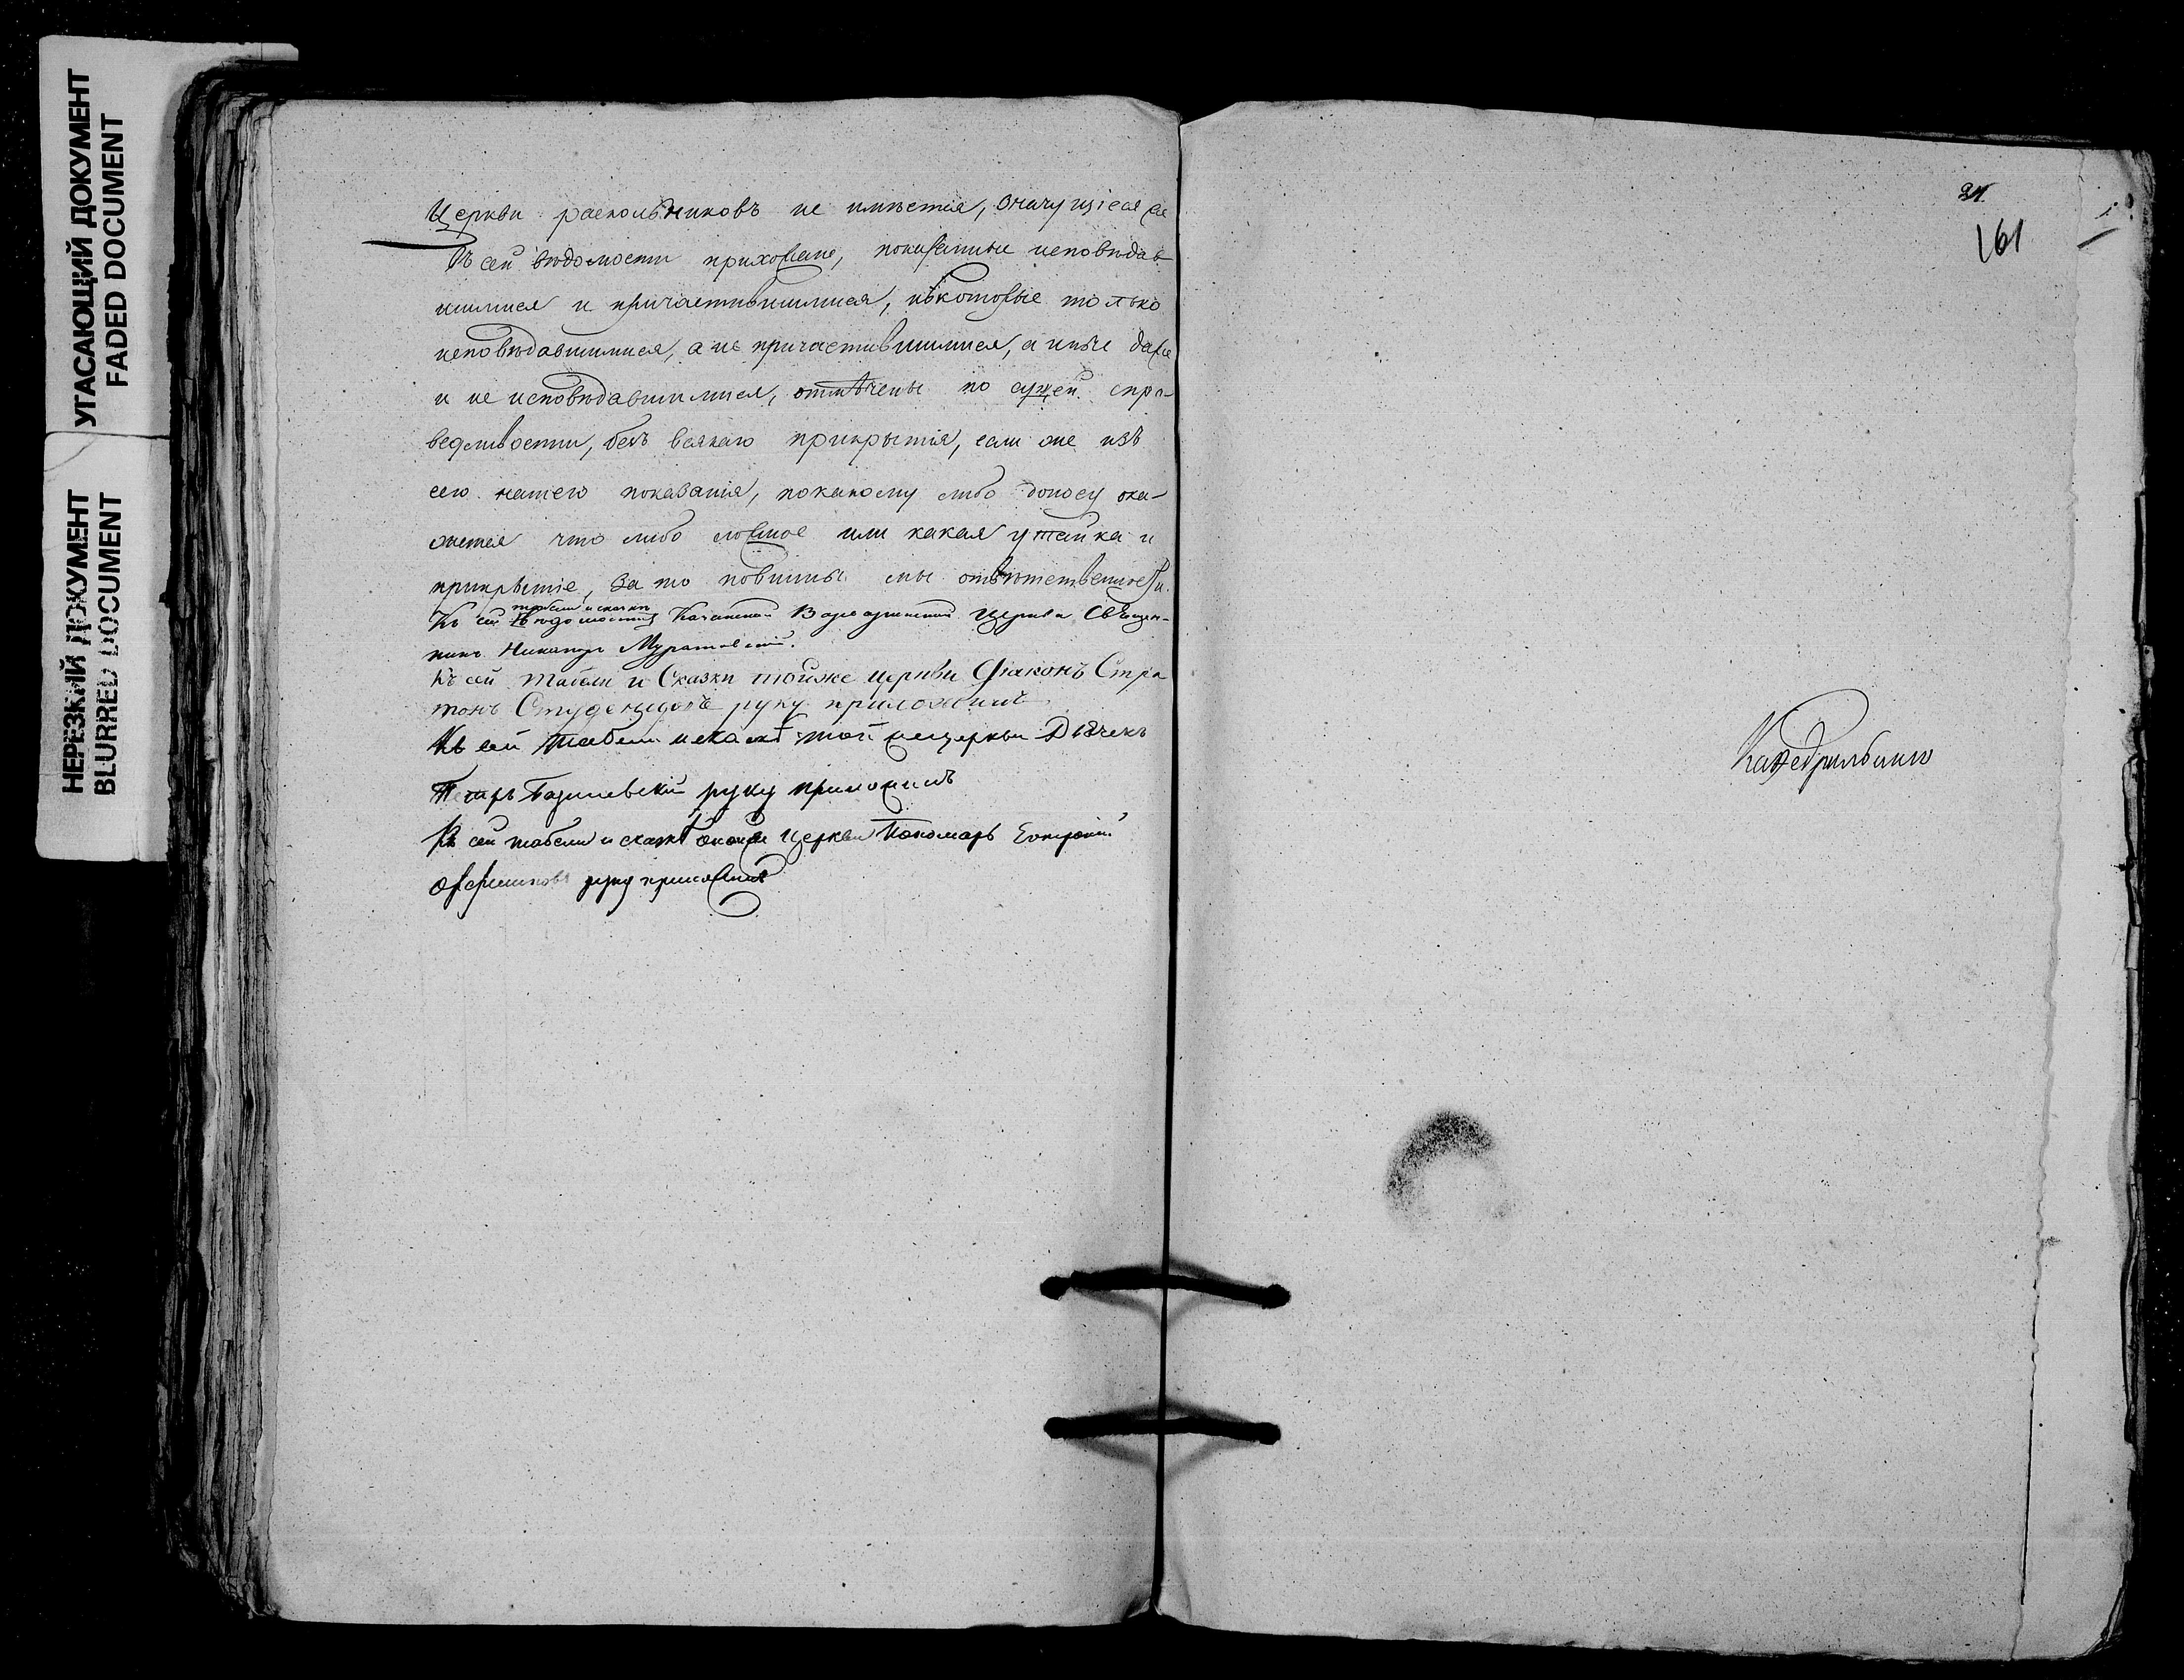 УГАСАЮЩИЙ ДОКУМЕНТ
FADED DOCUMENT
НЕРЕЗКИЙ ДОКУМЕНТ
BLURRED DOCUMENT
Церкви раскольниковъ не имѣется, значущіеся же
въ сей вѣдомости прихожане, показанные исповѣдав
шимися и причастившимися, нѣкоторые только
исповѣдавшимися, а не причастившимися, а иные даже
и не исповѣдавшимися, отмѣчены по сущей спра-
ведливости, безъ всякаго прикрытія, если же изъ
сего нашего показанія, покакому либо доносу ока-
жется что либо ложное или какая утайка и
прикрытіе, за то повинны мы отвѣтственности.
табели и сказки
Къ сей вѣдомости Варваринской церкви Священ-
никъ Никаноръ Муратовскій.
Къ сей табели и Сказки тойже церкви Діаконъ Стра
тонъ Студенцовъ руку приложилъ
Къ сей табели искаскѣ той жецеркви Дьячекъ
Петръ Базилевскій руку приложилъ
Къ сей табели и скаскѣ церкви Пономарь
руку приложилъ
31.
161